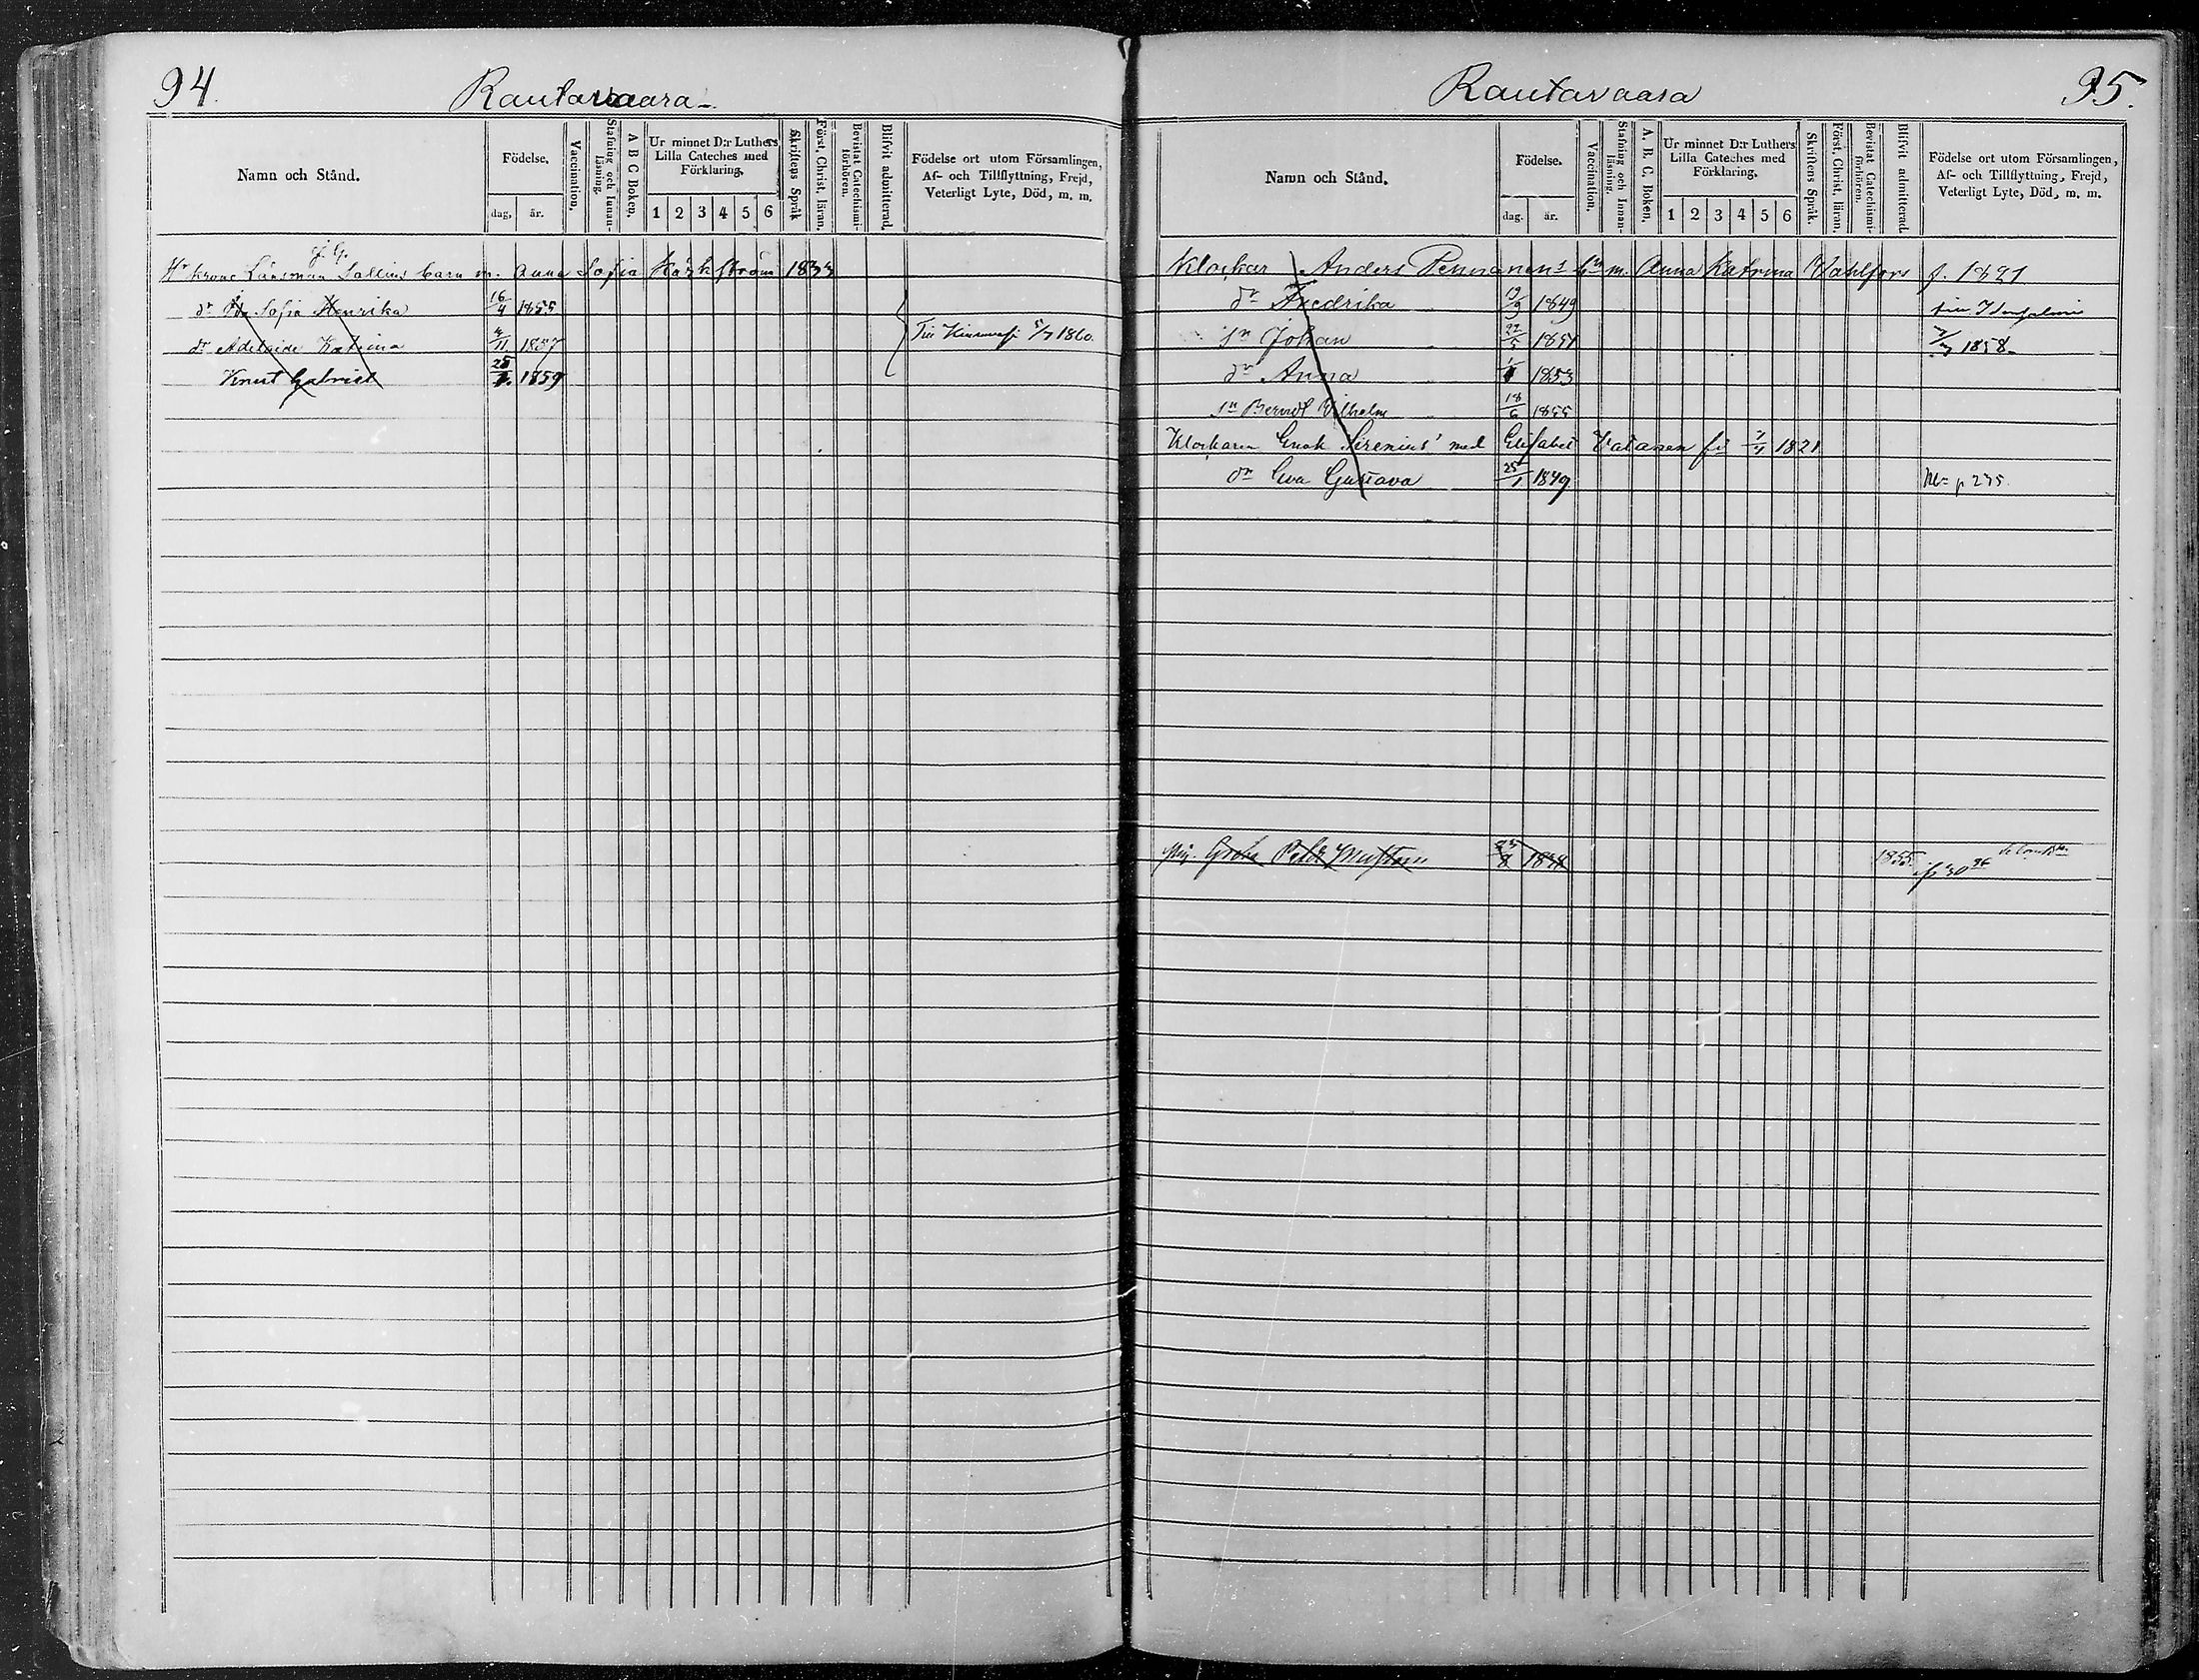 94.
Rautavaara
Namn och Stånd.
Födelse.
dag. år.
Vaccination.
Stafning och Innan-läsning.
A B C Boken.
Ur minnet D:r Luthers Lilla Cateches med Förklaring.
1 2 3 4 5 6
Skriftens Språk
Först. Christ. läran.
Bevistat Catechismi-förhören.
Blifvit admitterad.
Födelse ort utom Församlingen, Af- och Tillflyttning, Frejd, Veterligt Lyte, Död, m. m.
Krono Länsman Sallins barn m. Anna Sofia 1833
dr Ida Sofia Henrika 16/4 1855
dr Adelaide Katrina 4/11 1857 1860.
Knut Gabriel 1859
Rautavaara
95.
Namn och Stånd.
Födelse.
dag. år.
Vaccination.
Stafning och Innan-läsning.
A. B. C. Boken.
Ur minnet D:r Luthers Lilla Cateches med Förklaring.
1 2 3 4 5 6
Skriftens Språk.
Först. Christ. läran.
Bevistat Catechismi-förhören.
Blifvit admitterad.
Födelse ort utom Församlingen, Af- och Tillflyttning, Frejd, Veterligt Lyte, Död, m. m.
Klockar Anders Pennanens bn m. Anna Katrina Wahlfors f. 1821
dr Fredrika 19/9 1849
sn Johan 22/5 1851 1858
dr Anna 1853
sn Berndt Vilhelm 18/6 1855
Klockaren Enok Sirenius' med Elisabet Vatanen 1821
dr Eva Gustava 25/1 1849 p 235.
1838 1855